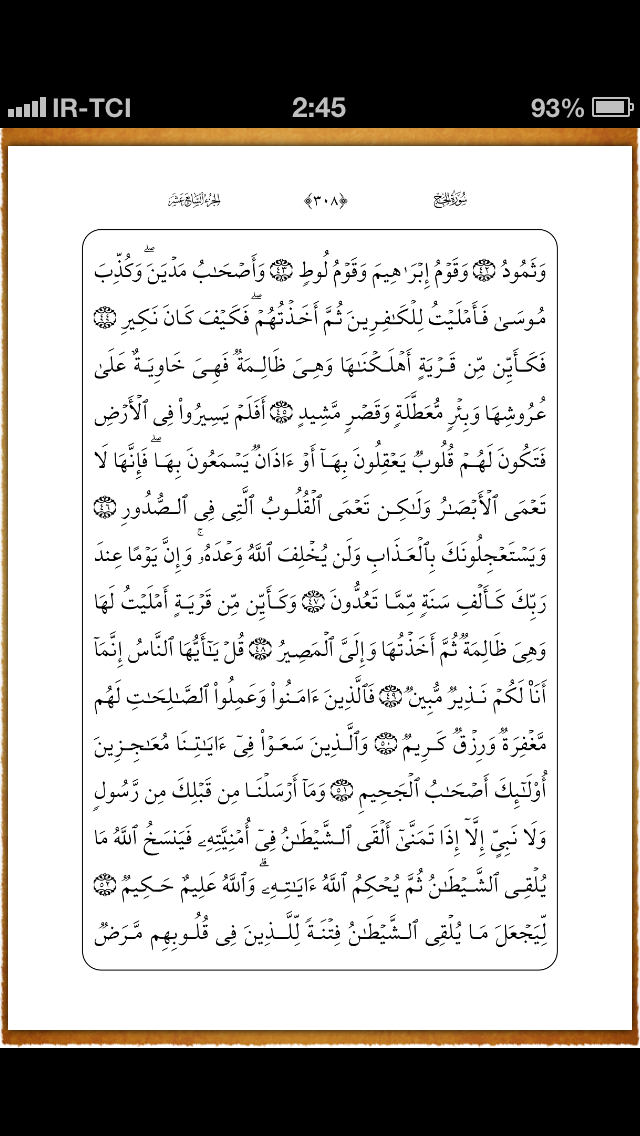 IR-TCI 2:45 93%
سُورَةُ الحَجّ ﴿٣٠٨﴾ الجُزءُ السَّابِعَ عَشَرَ
وَثَمُودُ ٤٢ وَقَوْمُ إِبْرَٰهِيمَ وَقَوْمُ لُوطٍ ٤٣ وَأَصْحَٰبُ مَدْيَنَ ۖ وَكُذِّبَ
مُوسَىٰ فَأَمْلَيْتُ لِلْكَٰفِرِينَ ثُمَّ أَخَذْتُهُمْ ۖ فَكَيْفَ كَانَ نَكِيرِ ٤٤
فَكَأَيِّن مِّن قَرْيَةٍ أَهْلَكْنَٰهَا وَهِىَ ظَالِمَةٌ فَهِىَ خَاوِيَةٌ عَلَىٰ
عُرُوشِهَا وَبِئْرٍ مُّعَطَّلَةٍ وَقَصْرٍ مَّشِيدٍ ٤٥ أَفَلَمْ يَسِيرُوا۟ فِى ٱلْأَرْضِ
فَتَكُونَ لَهُمْ قُلُوبٌ يَعْقِلُونَ بِهَآ أَوْ ءَاذَانٌ يَسْمَعُونَ بِهَا ۖ فَإِنَّهَا لَا
تَعْمَى ٱلْأَبْصَٰرُ وَلَٰكِن تَعْمَى ٱلْقُلُوبُ ٱلَّتِى فِى ٱلصُّدُورِ ٤٦
وَيَسْتَعْجِلُونَكَ بِٱلْعَذَابِ وَلَن يُخْلِفَ ٱللَّهُ وَعْدَهُۥ ۚ وَإِنَّ يَوْمًا عِندَ
رَبِّكَ كَأَلْفِ سَنَةٍ مِّمَّا تَعُدُّونَ ٤٧ وَكَأَيِّن مِّن قَرْيَةٍ أَمْلَيْتُ لَهَا
وَهِىَ ظَالِمَةٌ ثُمَّ أَخَذْتُهَا وَإِلَىَّ ٱلْمَصِيرُ ٤٨ قُلْ يَٰٓأَيُّهَا ٱلنَّاسُ إِنَّمَآ
أَنَا۠ لَكُمْ نَذِيرٌ مُّبِينٌ ٤٩ فَٱلَّذِينَ ءَامَنُوا۟ وَعَمِلُوا۟ ٱلصَّٰلِحَٰتِ لَهُم
مَّغْفِرَةٌ وَرِزْقٌ كَرِيمٌ ٥٠ وَٱلَّذِينَ سَعَوْا۟ فِىٓ ءَايَٰتِنَا مُعَٰجِزِينَ
أُو۟لَٰٓئِكَ أَصْحَٰبُ ٱلْجَحِيمِ ٥١ وَمَآ أَرْسَلْنَا مِن قَبْلِكَ مِن رَّسُولٍ
وَلَا نَبِىٍّ إِلَّآ إِذَا تَمَنَّىٰٓ أَلْقَى ٱلشَّيْطَٰنُ فِىٓ أُمْنِيَّتِهِۦ فَيَنسَخُ ٱللَّهُ مَا
يُلْقِى ٱلشَّيْطَٰنُ ثُمَّ يُحْكِمُ ٱللَّهُ ءَايَٰتِهِۦ ۗ وَٱللَّهُ عَلِيمٌ حَكِيمٌ ٥٢
لِّيَجْعَلَ مَا يُلْقِى ٱلشَّيْطَٰنُ فِتْنَةً لِّلَّذِينَ فِى قُلُوبِهِم مَّرَضٌ